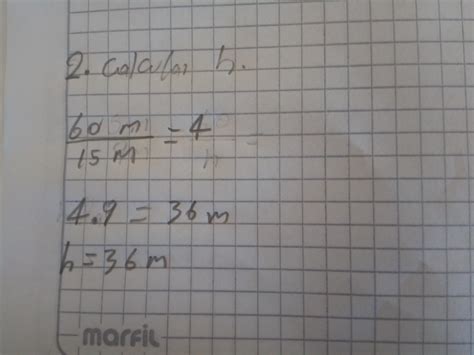 2. Calcular h.
60 m / 15 m = 4
4.9 = 36 m
h = 36 m
marfil